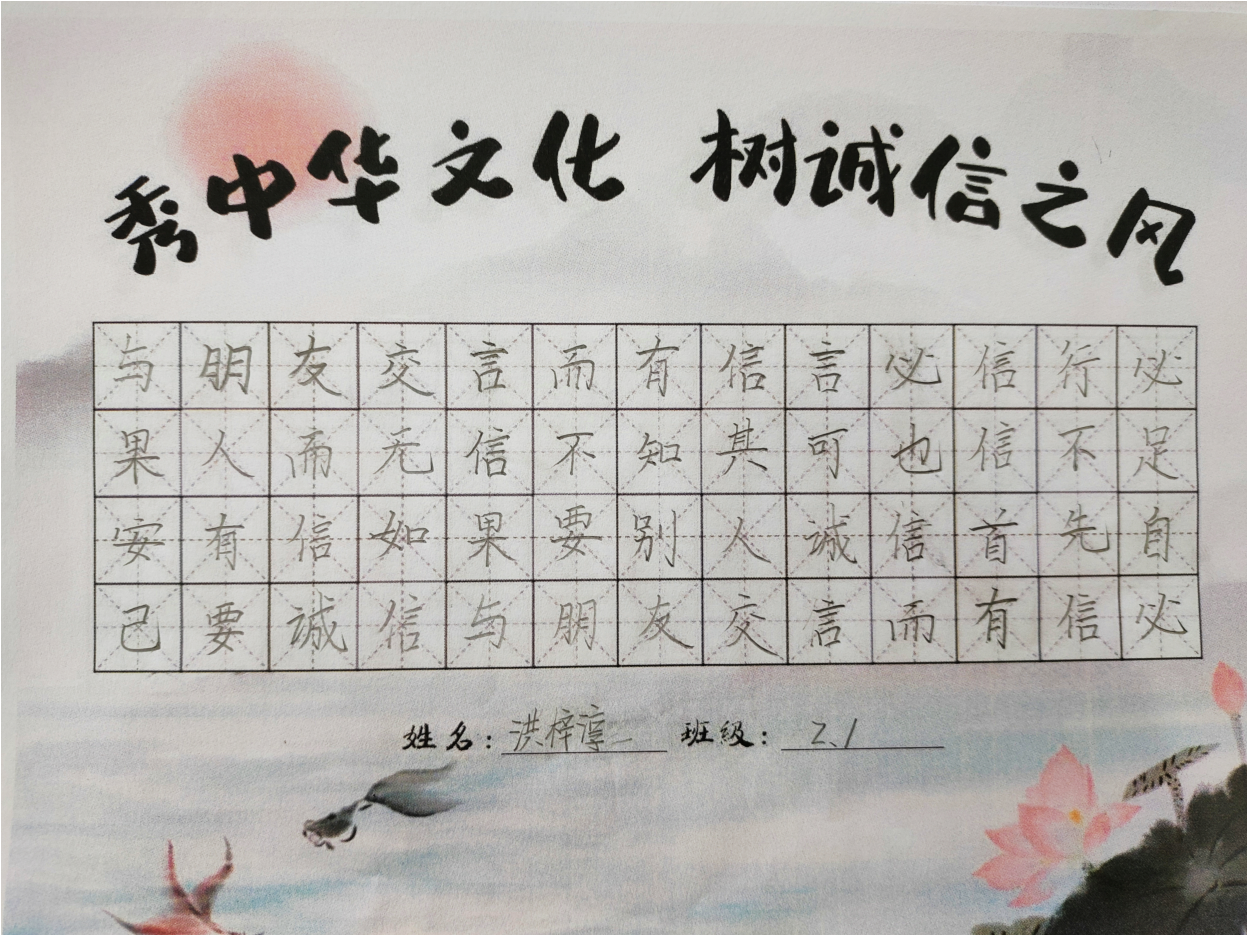 秀中华文化 树诚信之风
与朋友交言而有信言必信行必
果人而无信不知其可也信不足
安有信如果要别人诚信首先自
己要诚信与朋友交言而有信必
姓名:洪梓淳 班级:2.1